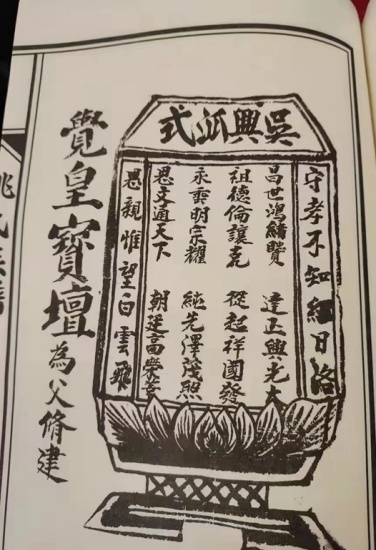 吳興泒式
守孝不知紅日洛
昌世鴻緒賢 達正興光大
祖德倫讓克 從起祥國發
永雲明宗耀 先澤茂照
思文通天下 朝廷富榮華
思親惟望白雲飛
覺皇寶壇 為父脩建